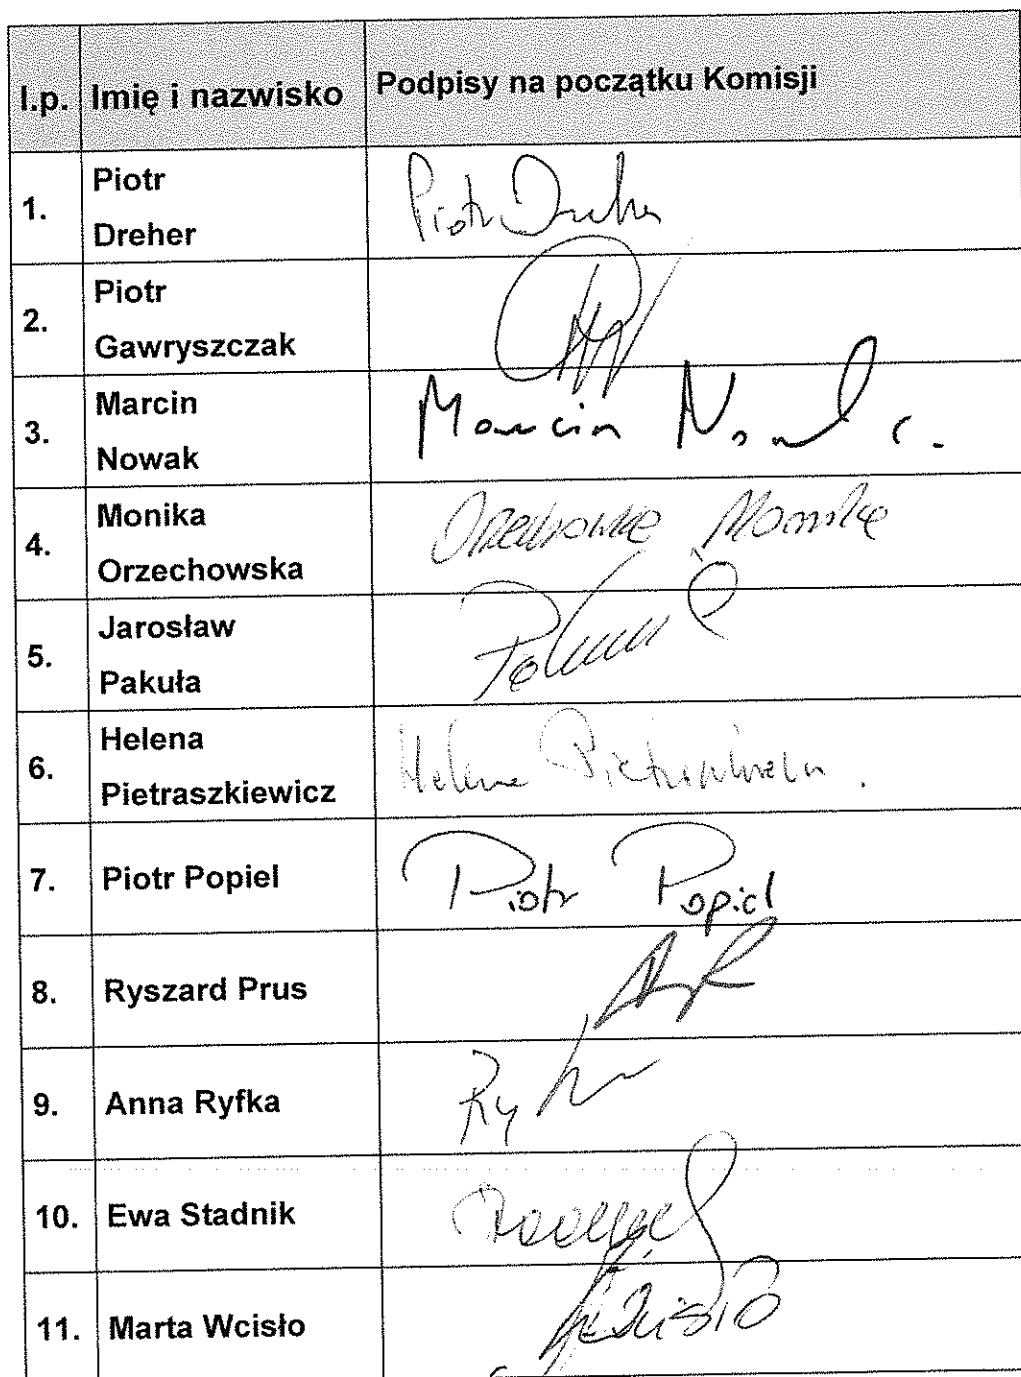 l.p. Imię i nazwisko Podpisy na początku Komisji
1. Piotr Dreher Piotr Dreher
2. Piotr Gawryszczak
3. Marcin Nowak Marcin
4. Monika Orzechowska Orzechowska Monika
5. Jarosław Pakuła
6. Helena Pietraszkiewicz Helena
7. Piotr Popiel Piotr Popiel
8. Ryszard Prus
9. Anna Ryfka
10. Ewa Stadnik
11. Marta Wcisło